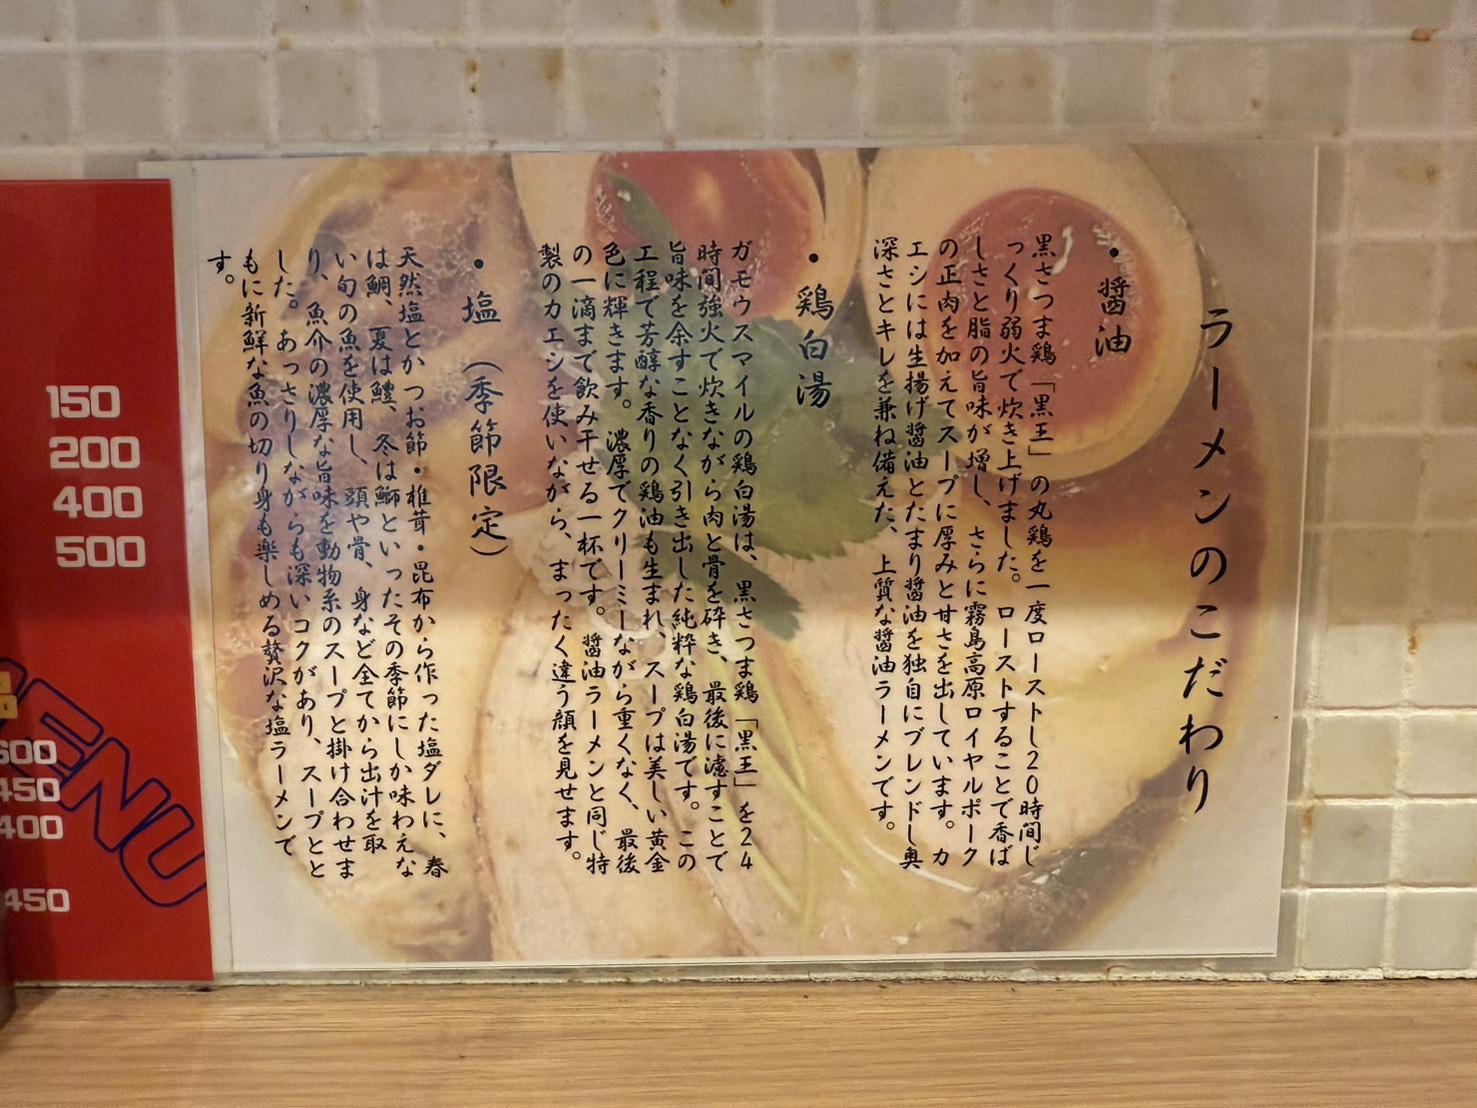 ラーメンのこだわり
・醤油
黒さつま鶏「黒王」の丸鶏を一度ローストし20時間じ
っくり弱火で炊き上げました。ローストすることで香ば
しさと脂の旨味が増し、さらに霧島高原ロイヤルポーク
の正肉を加えてスープに厚みと甘さを出しています。カ
エシには生揚げ醤油とたまり醤油を独自にブレンドし奥
深さとキレを兼ね備えた、上質な醤油ラーメンです。
・鶏白湯
ガモウスマイルの鶏白湯は、黒さつま鶏「黒王」を24
時間強火で炊きながら肉と骨を砕き、最後に濾すことで
旨味を余すことなく引き出した純粋な鶏白湯です。この
工程で芳醇な香りの鶏油も生まれ、スープは美しい黄金
色に輝きます。濃厚でクリーミーながら重くなく、最後
の一滴まで飲み干せる一杯です。醤油ラーメンと同じ特
製のカエシを使いながら、まったく違う顔を見せます。
・塩（季節限定）
天然塩とかつお節・椎茸・昆布から作った塩ダレに、春
は鯛、夏は鱧、冬は鰤といったその季節にしか味わえな
い旬の魚を使用し、頭や骨、身など全てから出汁を取
り、魚介の濃厚な旨味を動物系のスープと掛け合わせま
した。あっさりしながらも深いコクがあり、スープとと
もに新鮮な魚の切り身も楽しめる贅沢な塩ラーメンで
す。
150
200
400
500
品
600
450
400
450
MENU